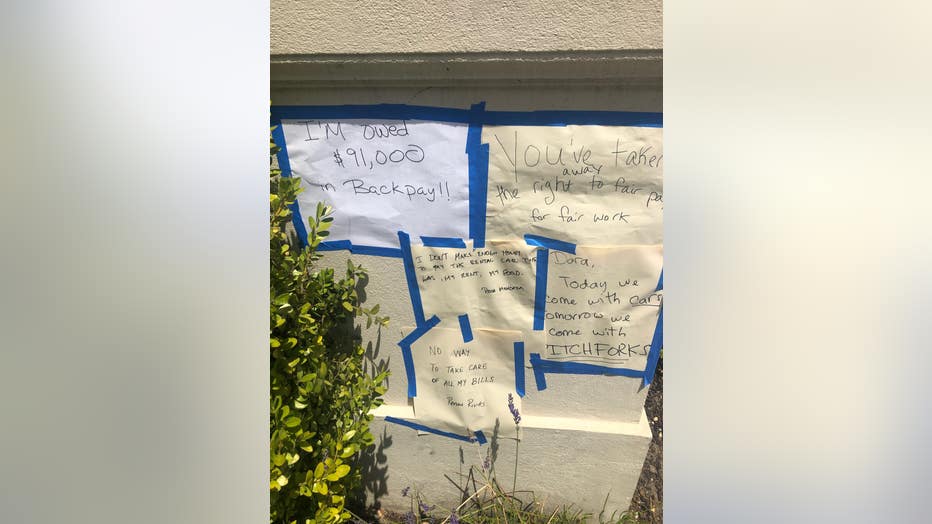 I'M owed
$91,000
in Backpay!!
You've taken
away
the right to fair pa
for fair work
I DON'T MAKE ENOUGH MONEY
TO PAY THE RENTAL CAR, THE
GAS, MY RENT, MY FOOD.
Dara,
Today we
come with cars
omorrow we
come with
ITCHFORKS
NO WAY
TO TAKE CARE
OF ALL MY BILLS